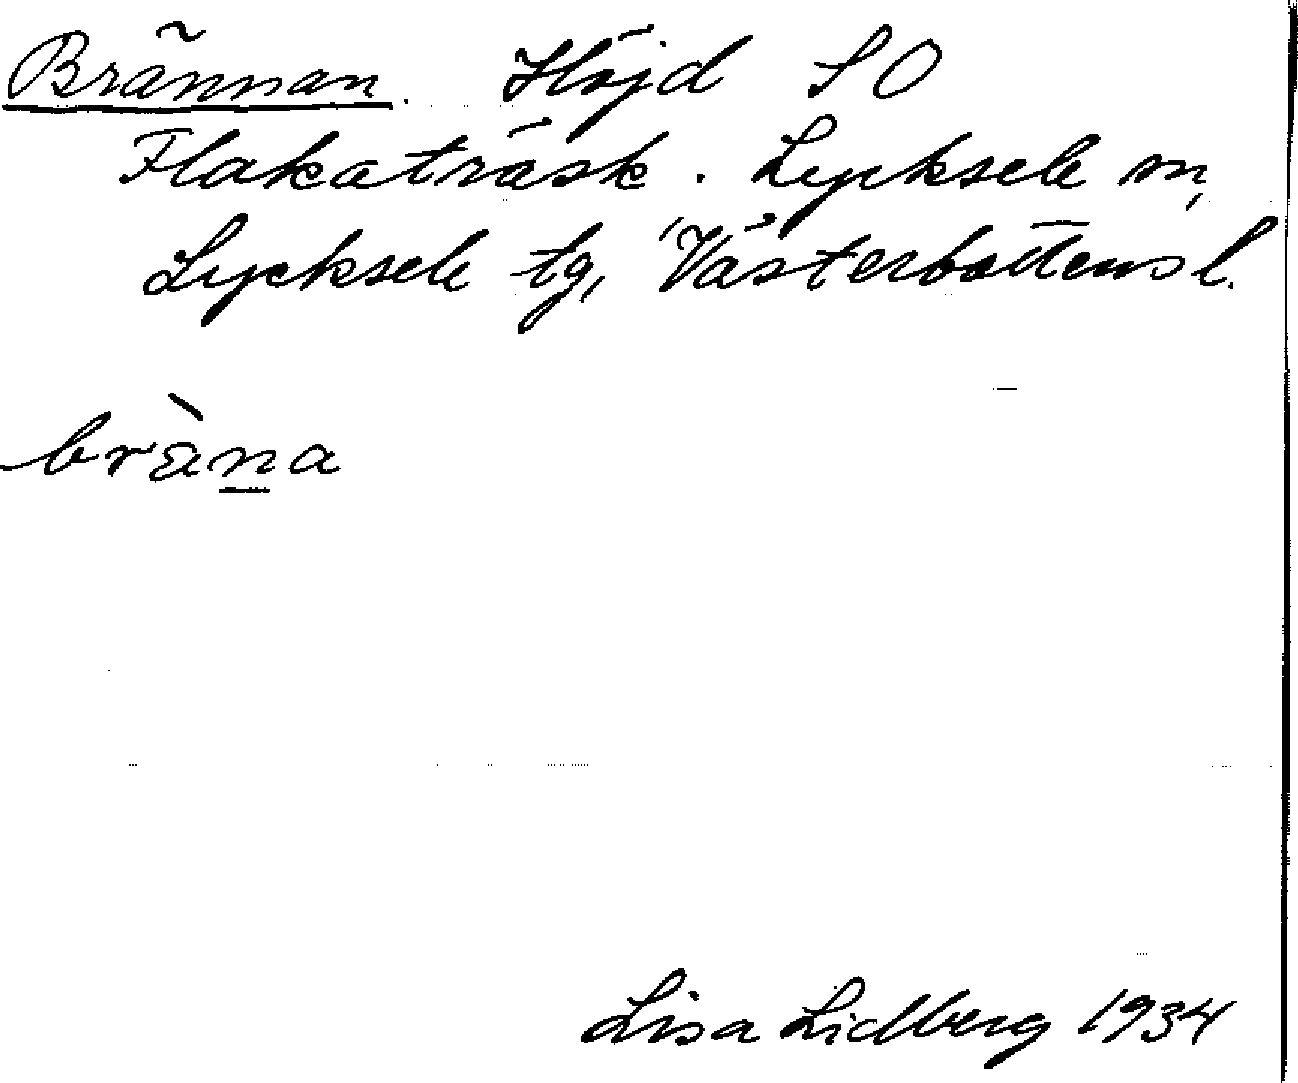 Brännan. Höjd SO
Flakaträsk. Lycksele sn,
Lycksele tg, Västerbottens l.
bràna
Lisa Lidberg 1934